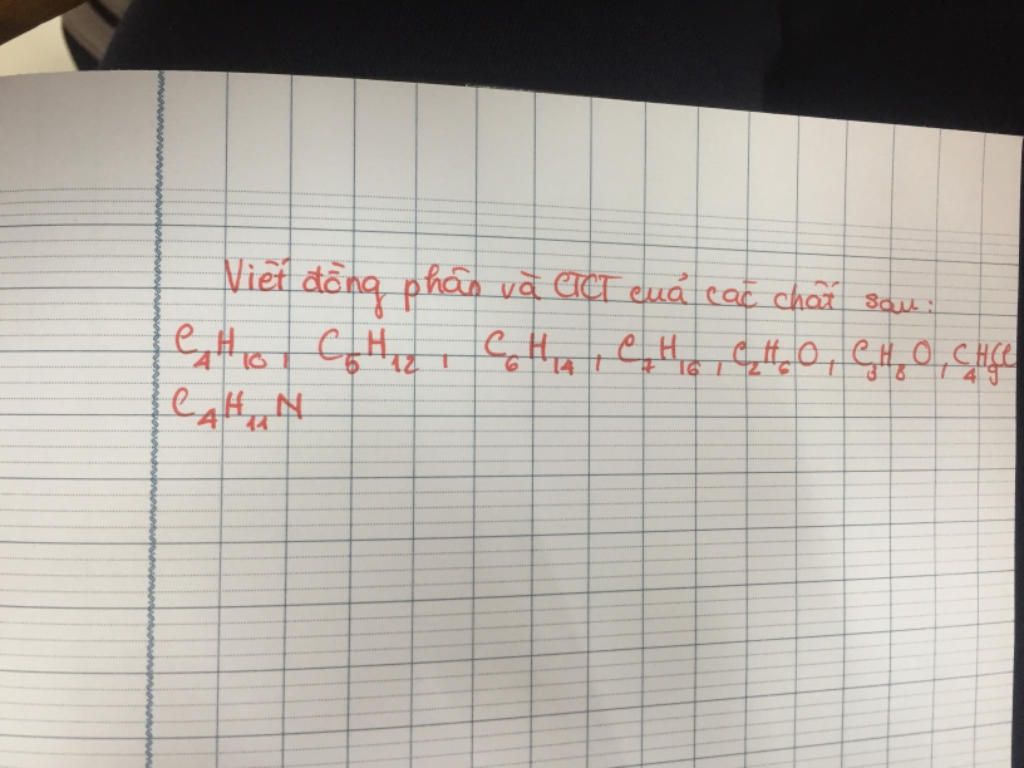 Viết đồng phân và CTCT cuả các chất sau:
C₄H₁₀, C₅H₁₂, C₆H₁₄, C₇H₁₆, C₂H₆O, C₃H₈O, C₄H₉Cl
C₄H₁₁N